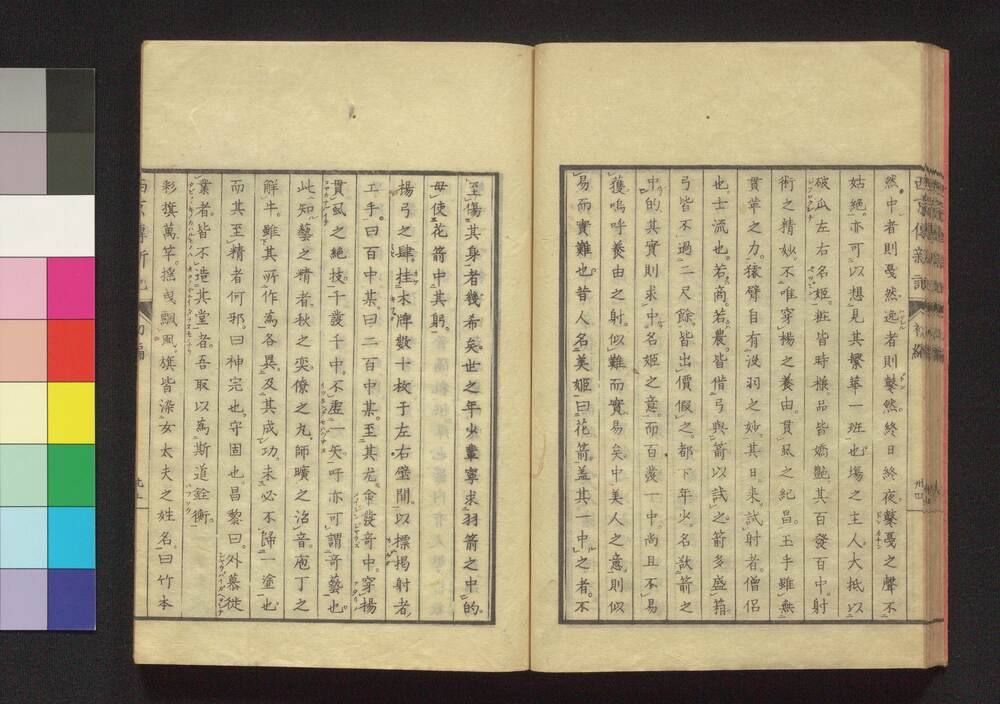 然。中者則戞然。逸者則鼕然。終日終夜。鼕戞之聲不
姑絶。亦可以想見其繁華一班也。場之主人大抵以
破瓜左右名姬。粧皆時樣。品皆嬌艷。其百發百中。射
術之精妙。不唯穿楊之養由。貫虱之紀昌。玉手雖無
貫革之力。猿臂自有沒羽之妙。其日來試射者。僧侶
也。士流也。若商。若農。皆偕弓與箭以試之。箭多盛箱。
弓皆不過二尺餘。皆出價假之。都下年少。名試箭之
中的。其實則求中名姬之意。而百發一中。尚且不易
獲。嗚呼養由之射。似難而實易矣。中美人之意。則似
易而實難也。昔人名美姬曰花箭。蓋其一中之者。不
至傷其身者幾希矣。世之年少輩。寧求羽箭之中的。
毋使花箭中其躬。
楊弓之肆。挂木牌數十枚于左右壁間。以標揭射者
工手。曰百中某。曰二百中某。至其尤命發奇中。穿楊
貫虱之絶技。千發千中。不虛一矢。吁亦可謂奇藝也。
此知藝之精者。秋之奕。僚之丸。師曠之治音。庖丁之
解牛。雖其所作爲各異。及其成功。未必不歸一塗也
而其至精者何邪。曰神完也。守固也。昌黎曰。外慕徙
業者。皆不造其堂者。吾取以爲斯道銓衡。
彩旗萬竿。搖曳飄風。旗皆染女太夫之姓名。曰竹本
西京傳新記
初編